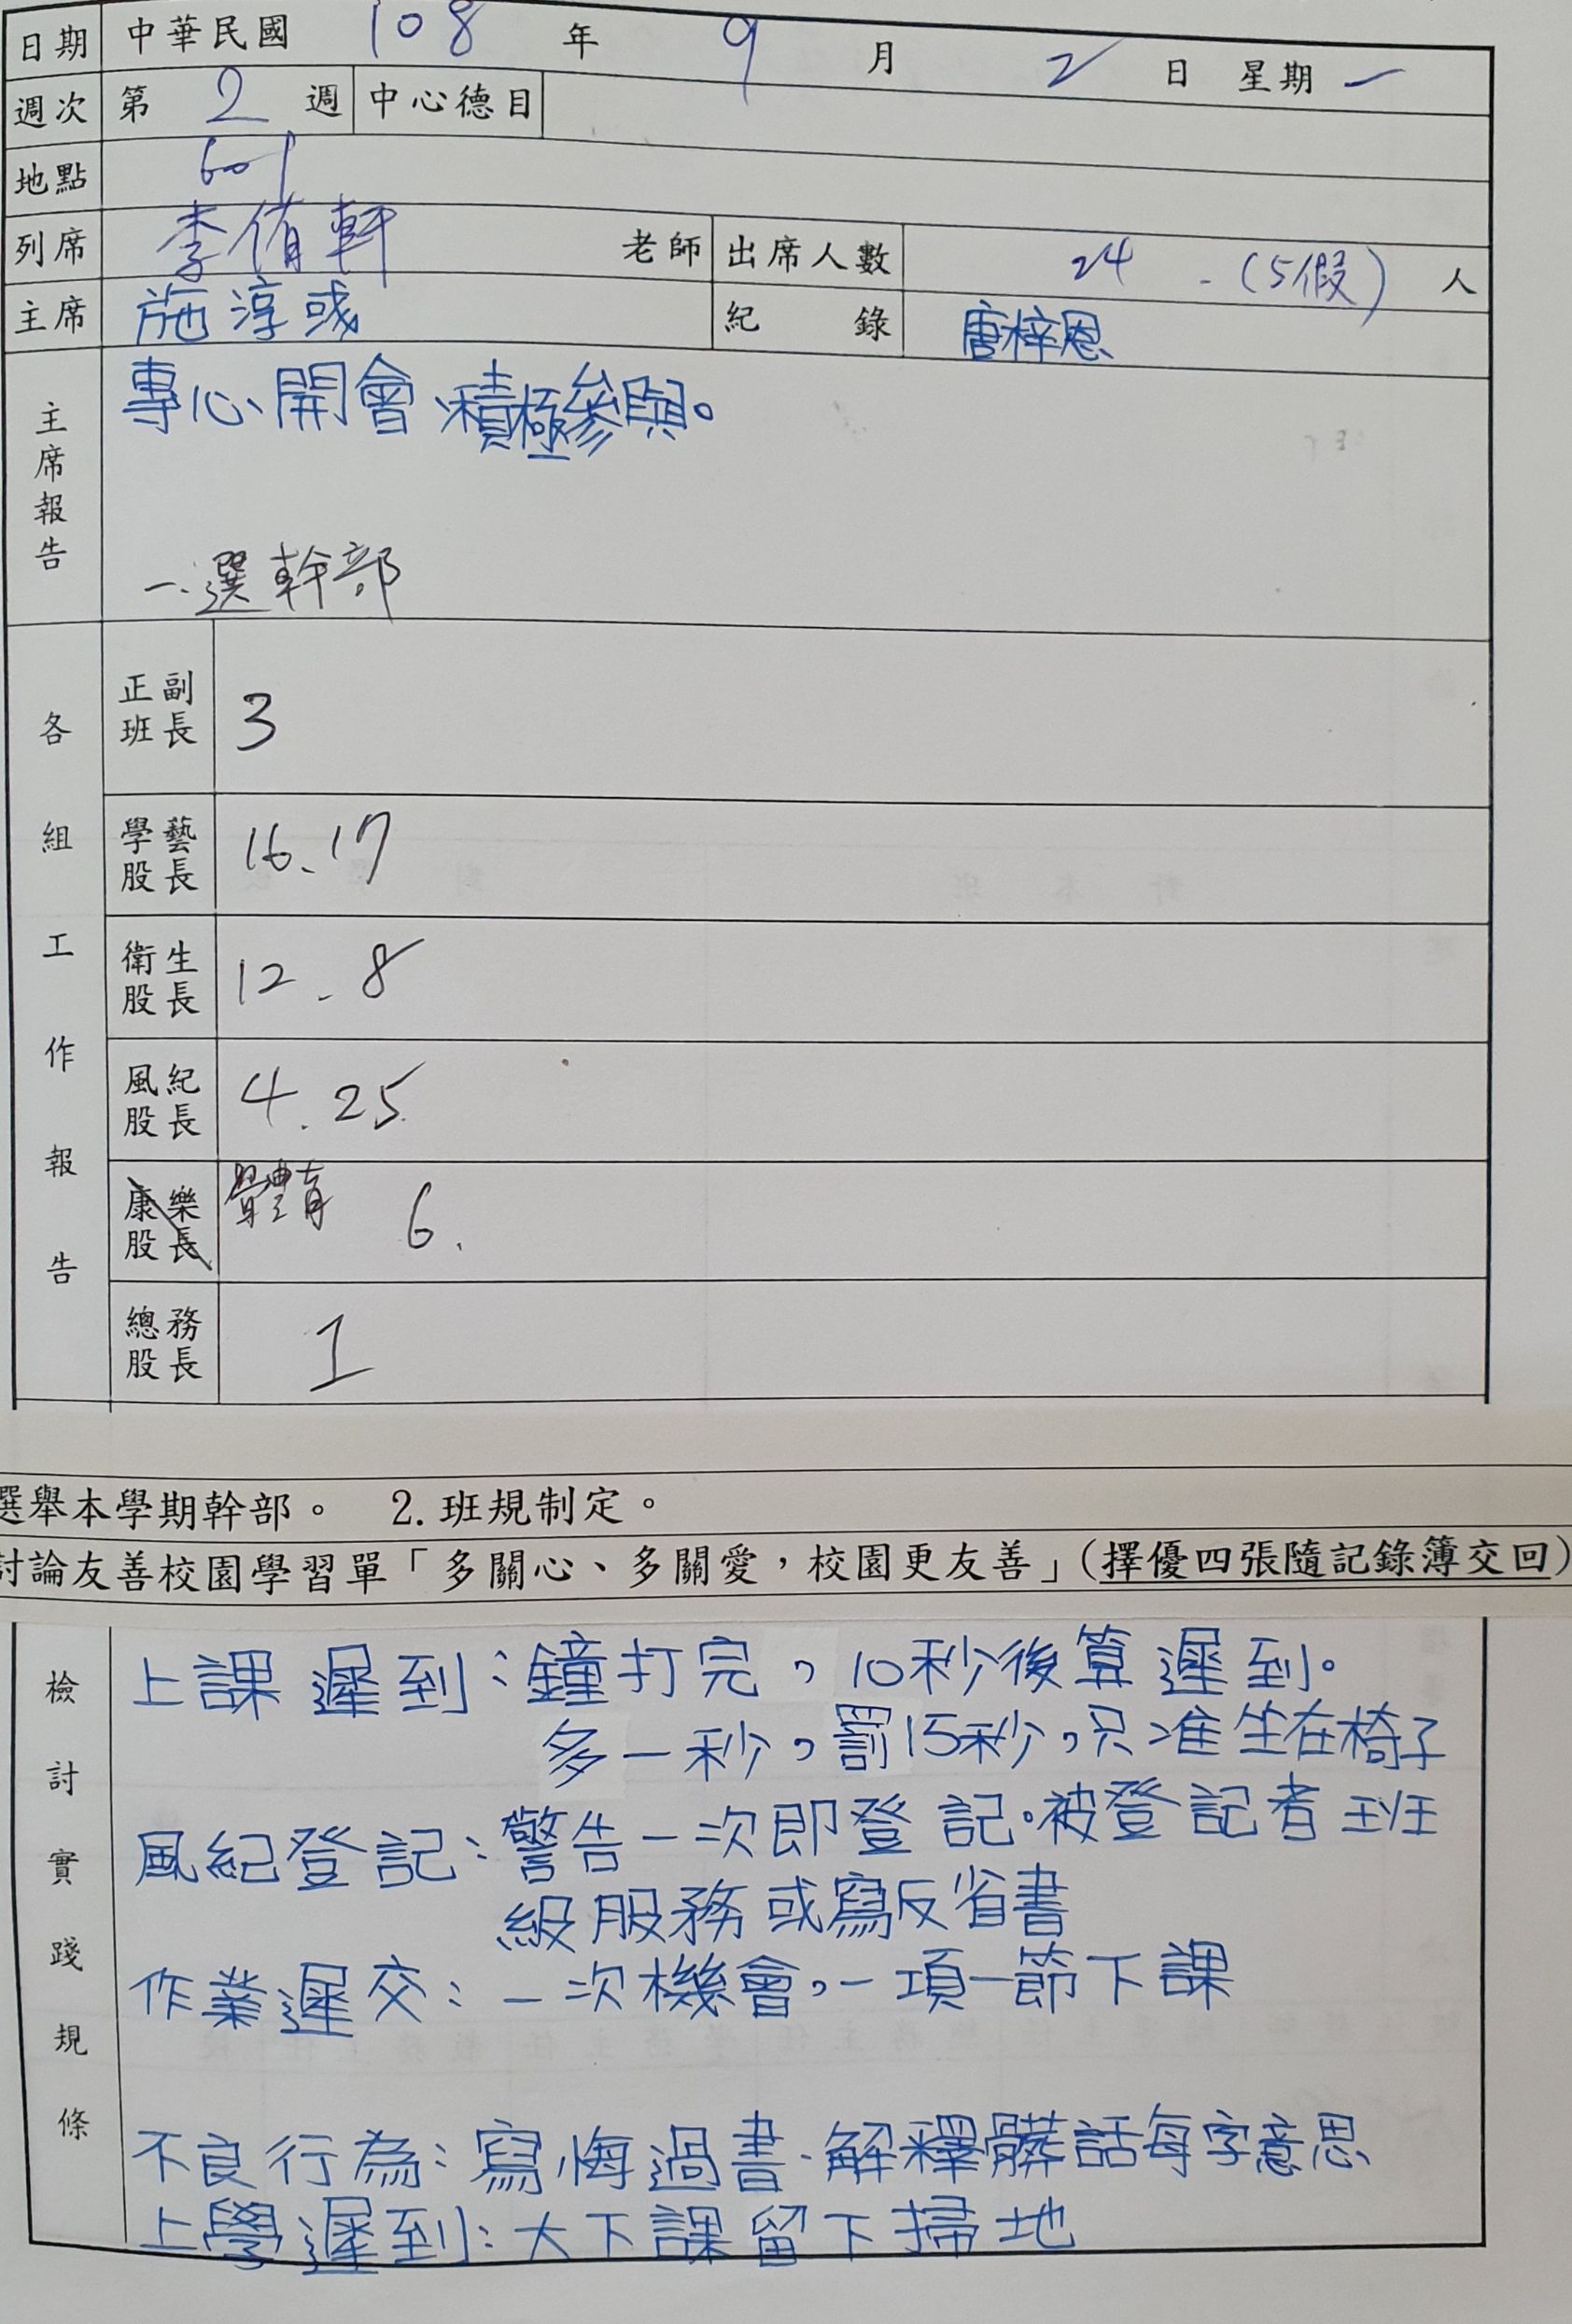 日期 中華民國 108 年 9 月 2 日 星期 一
週次 第 2 週 中心德目
地點 601
列席 李侑軒 老師 出席人數 24 -(5假) 人
主席 施淳彧 紀錄 唐梓恩
主席報告 專心開會、積極參與。
一.選幹部
各組工作報告
正副班長 3
學藝股長 16.17
衛生股長 12.8
風紀股長 4.25
康樂股長 體育 6.
總務股長 1
選舉本學期幹部。 2.班規制定。
討論友善校園學習單「多關心、多關愛,校園更友善」(擇優四張隨記錄簿交回)
檢討實踐規條
上課遲到:鐘打完,10秒後算遲到。
多一秒,罰15秒,只准坐在椅子
風紀登記:警告一次即登記。被登記者班
級服務或寫反省書
作業遲交:一次機會,一項一節下課
不良行為:寫悔過書.解釋髒話每字意思
上學遲到:大下課留下掃地